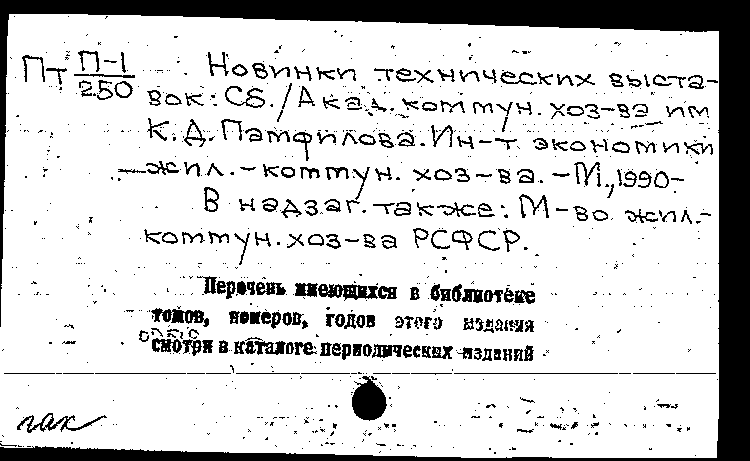 Пт П-1
250
Новинки технических выста-
вок: Сб./Акад. коммун. хоз-ва им
К.Д. Памфилова. Ин-т экономики
жил.-коммун. хоз-ва. - М., 1990-
В надзаг. также: М-во жил.-
коммун. хоз-ва РСФСР.
Перечень имеющихся в библиотеке
томов, номеров, годов этого издания
смотри в каталоге периодических изданий
гак